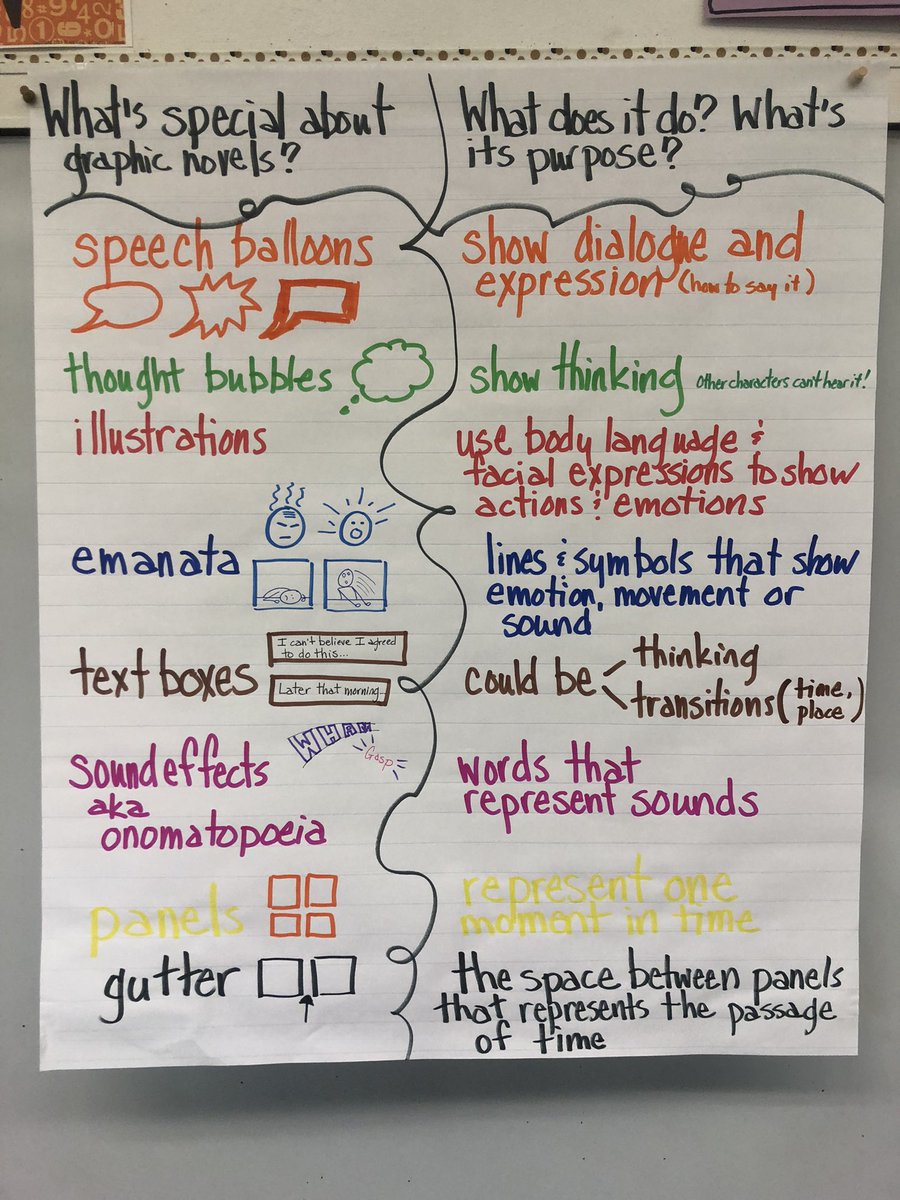 What's special about
graphic novels?
What does it do? What's
its purpose?
speech balloons
show dialogue and
expression (how to say it)
thought bubbles
show thinking other characters can't hear it!
illustrations
use body language &
facial expressions to show
actions & emotions
emanata
lines & symbols that show
emotion, movement or
sound
text boxes
I can't believe I agreed
to do this...
Later that morning...
could be
thinking
transitions (time, place)
sound effects
aka
onomatopoeia
WHAM
Gasp
words that
represent sounds
panels
represent one
moment in time
gutter
the space between panels
that represents the passage
of time